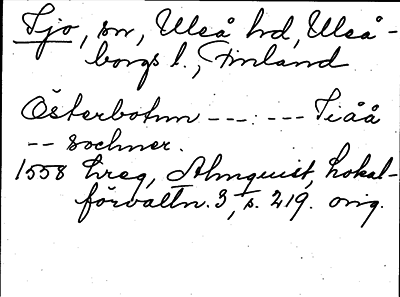 Ijo, sn, Uleå hd, Uleå-
borgs l., Finland
Österbotnn ---:--- Iiåå
-- sochner.
1558 hreg, Almquist, Lokal-
förvaltn. 3, s. 219. orig.